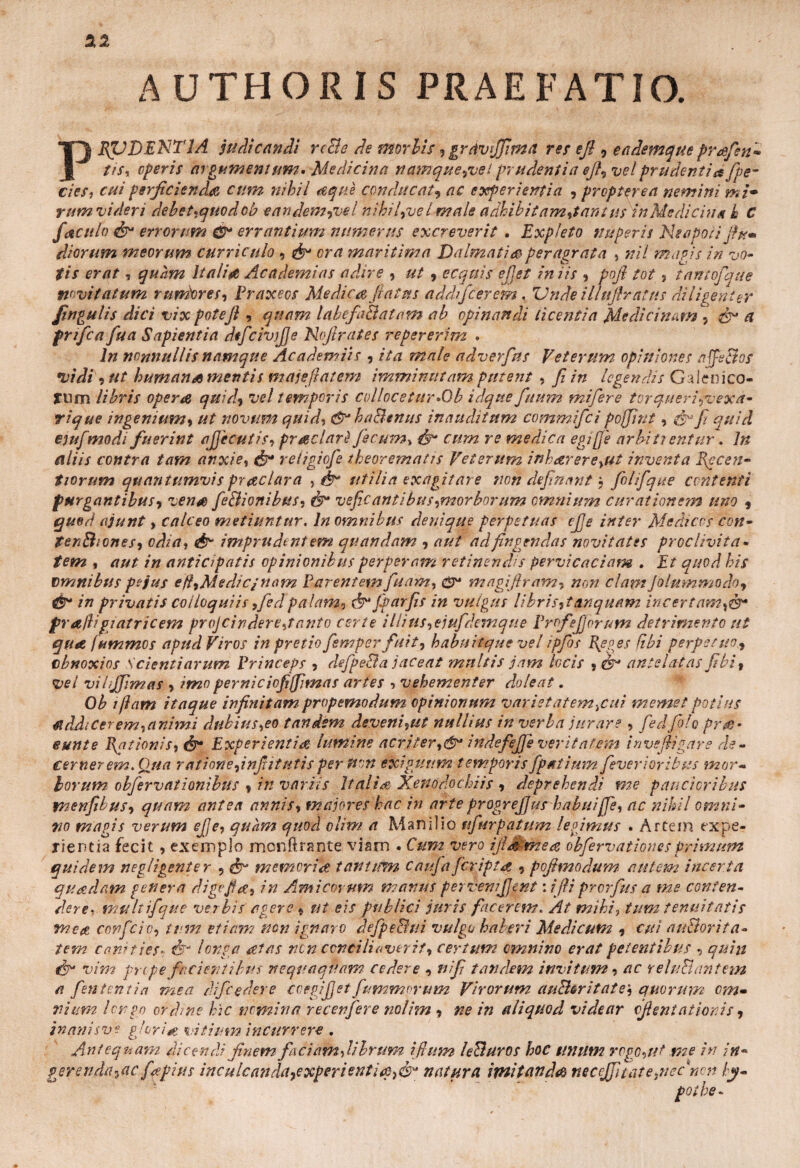 22
AUTHORIS PRAEFATIO.
PRUDENTIA judicandi recte de morbis, gravissima res est, eademque præsen-
tis, operis argumentum. Medicina namque, vel prudentia est, vel prudentiæ spe-
cies, cui perficiendæ cum nihil æquè conducat, ac experientia, propterea nemini mi-
rum videri debet, quod ob eandem, vel nihil, vel male adhibitam, tantus in Medicina
sæculo & errorum & errantium numerus excreverit. Expleto nuperis Neapoti stu-
diorum meorum curriculo, & ora maritima Dalmatiæ peragrata, nil magis in vo-
tis erat, quàm Italiæ Academias adire, ut, ecquis esset in iis, post tot, tantosque
novitatum rumores, Praxeos Medicæ status addiscerem. Unde illustratus diligenter
singulis dici vix potest, quam labefactatam ab opinandi licentia Medicinam, & a
prisca sua Sapientia descivisse Nostrates repererim.
In nonnullis namque Academiis, ita male adversus Veterum opiniones affectos
vidi, ut humanæ mentis majestatem imminutam putent, si in legendis Galenico-
rum libris operæ quid, vel temporis collocetur. Ob idque suum misere torqueri, vexa-
rique ingenium, ut novum quid, & hactenus inauditum commisci possint, & si quid
ejusmodi fuerint assecutis, præclarè secum, & cum re medica egisse arbitrentur. In
aliis contra tam anxie, & religiose theorematis Veterum inhærere, ut inventa Recen-
tiorum quantumvis præclara, & utilia exagitare non desinant; solisque contenti
purgantibus, venæ sectionibus, & vesicantibus, morborum omnium curationem uno,
quod ajunt, calceo metiuntur. In omnibus denique perpetuas esse inter Medicos con-
tentiones, odia, & imprudentem quandam, aut adfingendas novitates proclivita-
tem, aut in anticipatis opinionibus perperam retinendis pervicaciam. Et quod his
omnibus pejus est, Medicinam Parentem suam, & magistram, non clam solummodo,
& in privatis colloquiis, sed palam, & sparsis in vulgus libris, tanquam incertam, &
præstigiatricem projcindere, tanto certe illius, ejusdemque Professorum detrimento ut
quæ summos apud Viros in pretio semper fuit, habuitque vel ipsos Reges sibi perpetuo,
obnoxios Scientiarum Princeps, despecta jaceat multis jam locis, & antelatas sibi,
vel vilissimas, imo perniciosissimas artes, vehementer doleat.
Ob istam itaque infinitam propemodum opinionum varietatem, cui memet potius
addicerem, animi dubius, eo tandem deveni, ut nullius in verba jurare, sed solo præ-
eunte Rationis, & Experientiæ lumine acriter, & indefesse veritatem investigare de-
cernerem. Qua ratione, institutis per non exiguum temporis spatium severioribus mor-
borum observationibus, in variis Italiæ Xenodochiis, deprehendi me paucioribus
mensibus, quam antea annis, majores hac in arte progressus habuisse, ac nihil omni-
no magis verum esse, quàm quod olim a Manilio usurpatum legimus. Artem expe-
rientia fecit, exemplo monstrante viam. Cum vero istæ meæ observationes primum
quidem negligenter, & memoriæ tantum causa scriptæ, postmodum autem incerta
quædam genera digestæ, in Amicorum manus pervenissent: isti prorsus a me conten-
dere, multisque verbis agere, ut eis publici juris facerem. At mihi, tum tenuitatis
meæ conscio, tum etiam non ignaro despectui vulgo haberi Medicum, cui auctorita-
tem canities, & longa ætas non conciliaverit, certum omnino erat petentibus, quin
& vim prope facientibus nequaquam cedere, nisi tandem invitum, ac reluctantem
a sententia mea discedere coegisset summorum Virorum auctoritates; quorum om-
nium longo ordine hic nomina recensere nolim, ne in aliquod videar ostentationis,
inanisve gloriæ vitium incurrere.
Antequam dicendi finem faciam, librum istum lecturos hoc unum rogo, ut me in in-
gerenda, ac sæpius inculcanda, experientiæ, & natura imitandæ necessitate, nec non hy-
pothe-